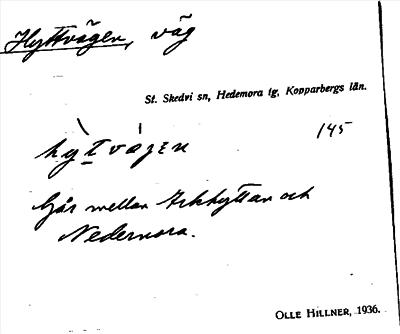 Hyttvägen, väg
St. Skedvi sn, Hedemora tg, Kopparbergs län.
hỳt̲vá̀gɛn 145
Går mellan Arkhyttan och
Nedernora.
OLLE HILLNER, 1936.